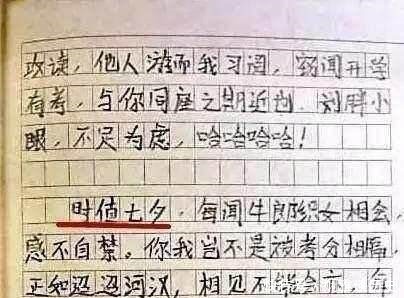 攻读，他人游而我习酒，窃闻开学
有考，与你同座之期近也。刘胖小
眼，不足为虑，哈哈哈哈！
时值七夕，每闻牛郎织女相会，
感不自禁。你我岂不是被考分相隔，
正如迢迢河汉，相见不能会言，每